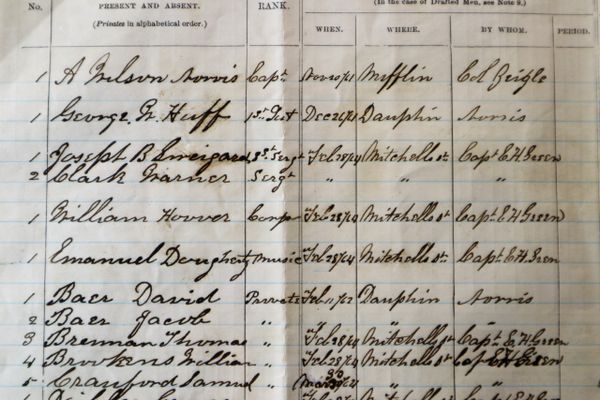 (In the case of Drafted Men, see Note 8.)
No. PRESENT AND ABSENT. RANK.
(Privates in alphabetical order.) WHEN. WHERE. BY WHOM. PERIOD.
1 A Wilson Norris Capt Mifflin Col Zeigle
1 George W. Huff 1st Lieut Dec 26/61 Dauphin Norris
1 Joseph B Sweigard 1st Sergt Feb 28/64 Mitchells St Capt E H Green
2 Clark Warner Sergt " " "
1 William Hoover Corp Feb 28/64 Mitchells St Capt E H Green
1 Emanuel Dougherty Music Feb 28/64 Mitchells St Capt E H Green
1 Baer David Private Dauphin Norris
2 Baer Jacob " " "
3 Brennan Thomas " Feb 28/64 Mitchells St Capt E H Green
4 Brookens William " Feb 28/64 Mitchells St Capt E H Green
5 Crawford Samuel " " "